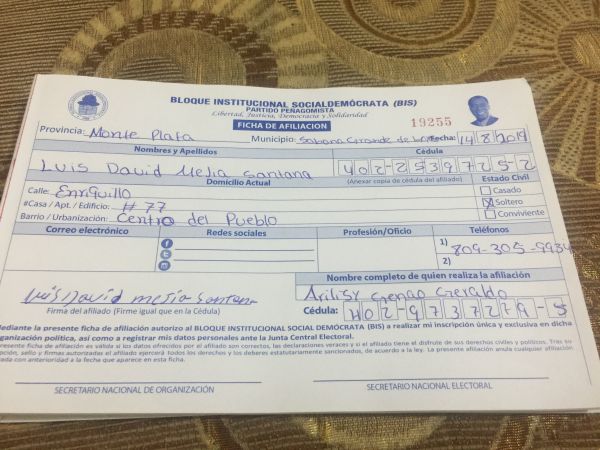 BLOQUE INSTITUCIONAL SOCIALDEMÓCRATA (BIS)
PARTIDO PEÑAGOMISTA
Libertad, Justicia, Democracia y Solidaridad
FICHA DE AFILIACION
19255
Provincia: Monte Plata Municipio: Sabana Grande de Fecha: 14/8/2019
Nombres y Apellidos Cédula
Luis David Mejia Santana 402-2539725-2
Domicilio Actual (Anexar copia de cédula del afiliado) Estado Civil
Calle: Enriquillo Casado
#Casa / Apt. / Edificio: #77 Soltero
Barrio / Urbanización: Centro del Pueblo Conviviente
Correo electrónico Redes sociales Profesión/Oficio Teléfonos
1) 809-305-9934
2)
Nombre completo de quien realiza la afiliación
Luis David mejia Santana
Firma del afiliado (Firme igual que en la Cédula)
Cédula: 402-9737279-5
Mediante la presente ficha de afiliación autorizo al BLOQUE INSTITUCIONAL SOCIAL DEMÓCRATA (BIS) a realizar mi inscripción única y exclusiva en dicha
organización política, así como a registrar mis datos personales ante la Junta Central Electoral.
presente ficha de afiliación es válida si los datos ofrecidos por el afiliado son correctos, las declaraciones veraces y si el afiliado tiene el disfrute de sus derechos civiles y políticos. Tras su
pción, sello y firmas autorizadas el afiliado ejercerá todos los derechos y los deberes estatutariamente sancionados, de acuerdo a la ley. La presente afiliación anula cualquier afiliación
zada con anterioridad a la fecha que aparece en esta ficha.
SECRETARIO NACIONAL DE ORGANIZACIÓN SECRETARIO NACIONAL ELECTORAL